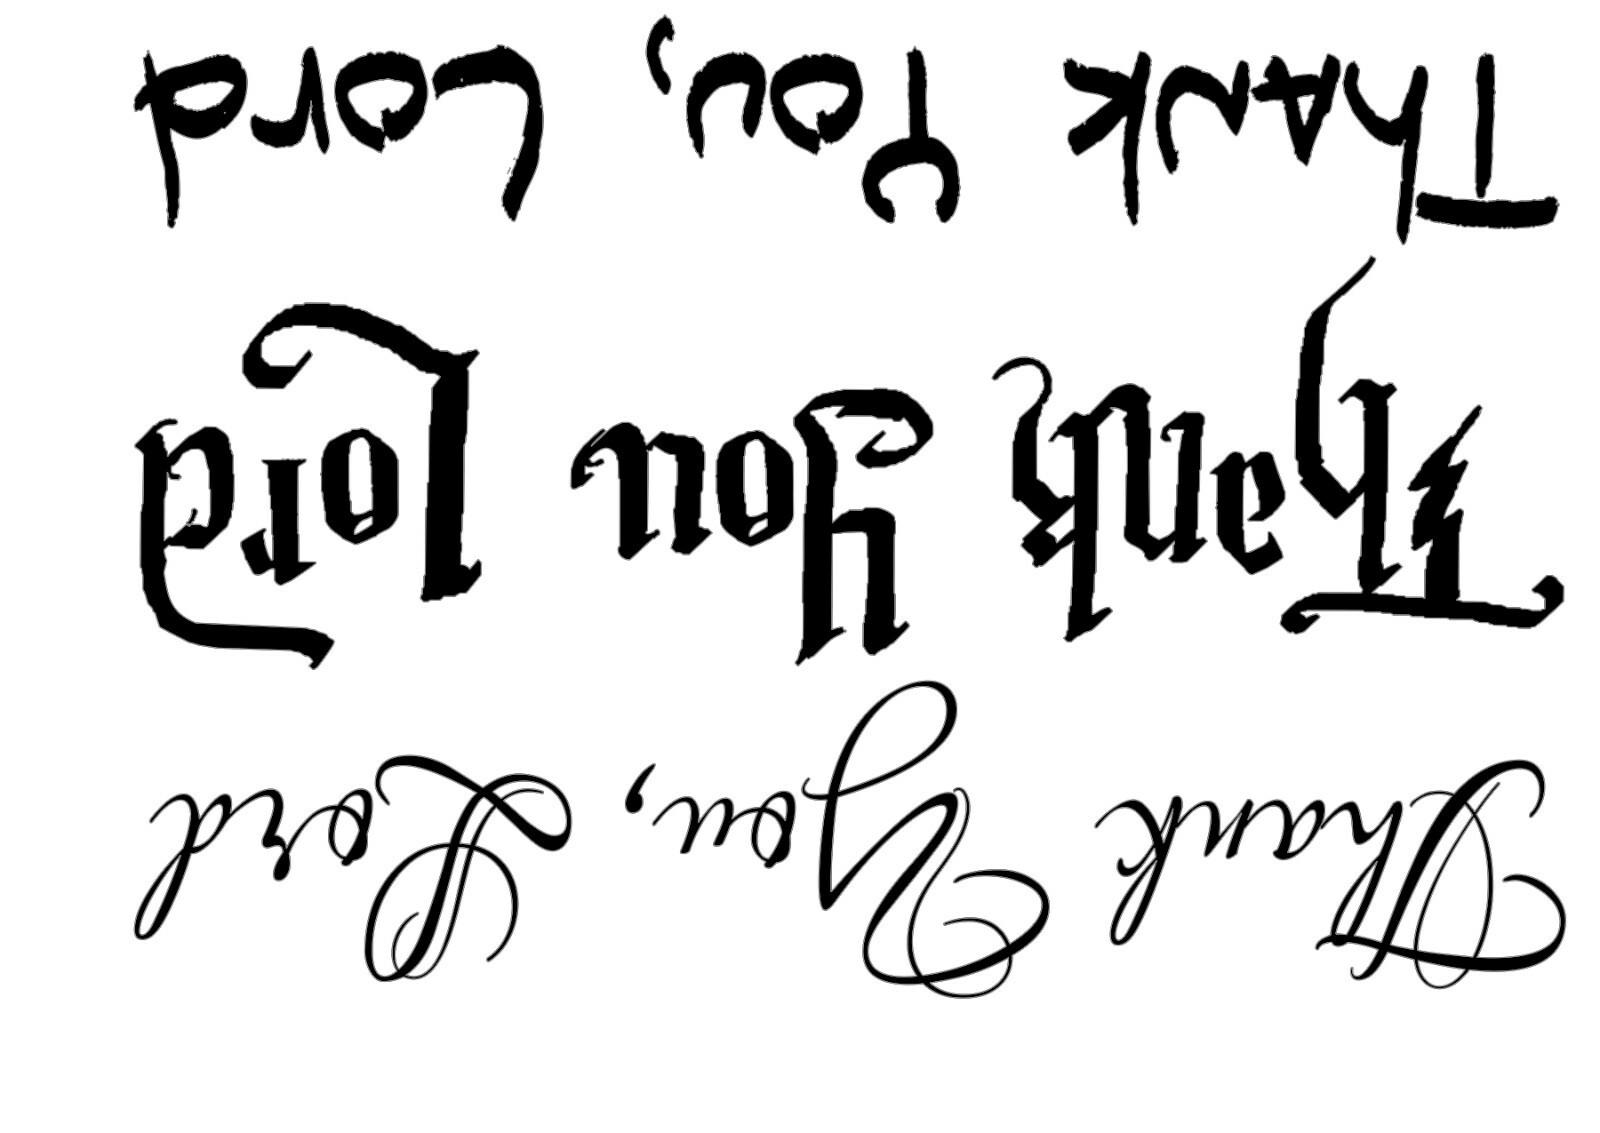 Thank You, Lord
Thank You Lord
Thank You, Lord